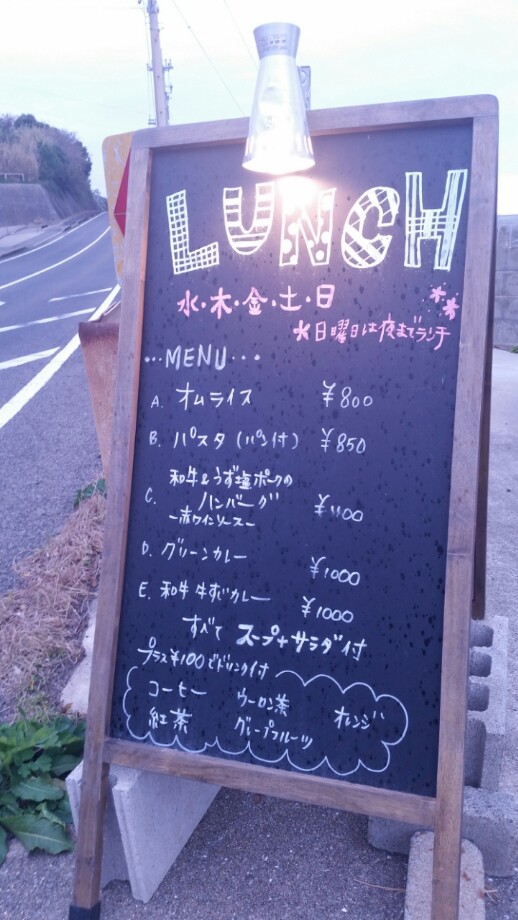 LUNCH
水・木・金・土・日
＊日曜日は夜までランチ
・・・MENU・・・
A. オムライス ¥800
B. パスタ(パン付) ¥850
和牛&うず塩ポークの
C. ハンバーグ ¥1100
ー赤ワインソースー
D. グリーンカレー ¥1000
E. 和牛 牛すじカレー ¥1000
すべて スープ+サラダ付
プラス¥100でドリンク付
コーヒー ウーロン茶 オレンジ
紅茶 グレープフルーツ